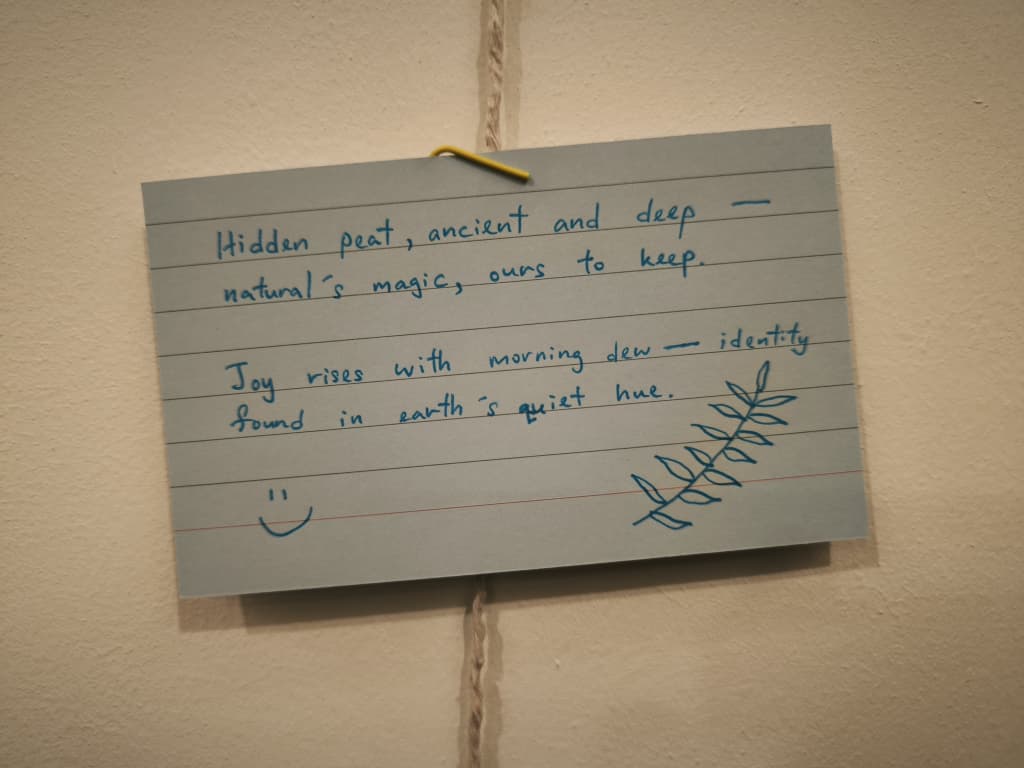 Hidden peat, ancient and deep —
natural's magic, ours to keep.
Joy rises with morning dew — identity
found in earth's quiet hue.